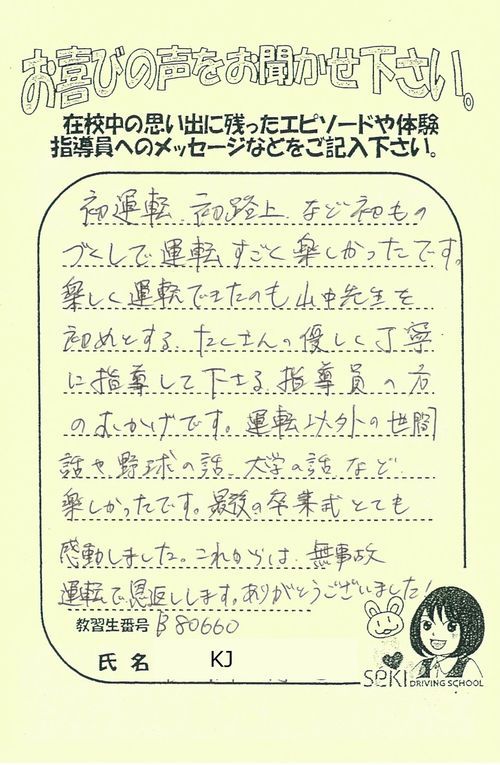 お喜びの声をお聞かせ下さい。
在校中の思い出に残ったエピソードや体験
指導員へのメッセージなどをご記入下さい。
初運転、初路上、など初もの
づくしで運転すごく楽しかったです。
楽しく運転できたのも山中先生を
初めとする、たくさんの優しく丁寧
に指導して下さる指導員の方
のおかげです。運転以外の世間
話や野球の話、大学の話など
楽しかったです。最後の卒業式とても
感動しました。これからは、無事故
運転で恩返しします。ありがとうございました!
教習生番号 B80660
氏名 KJ
SEKI DRIVING SCHOOL